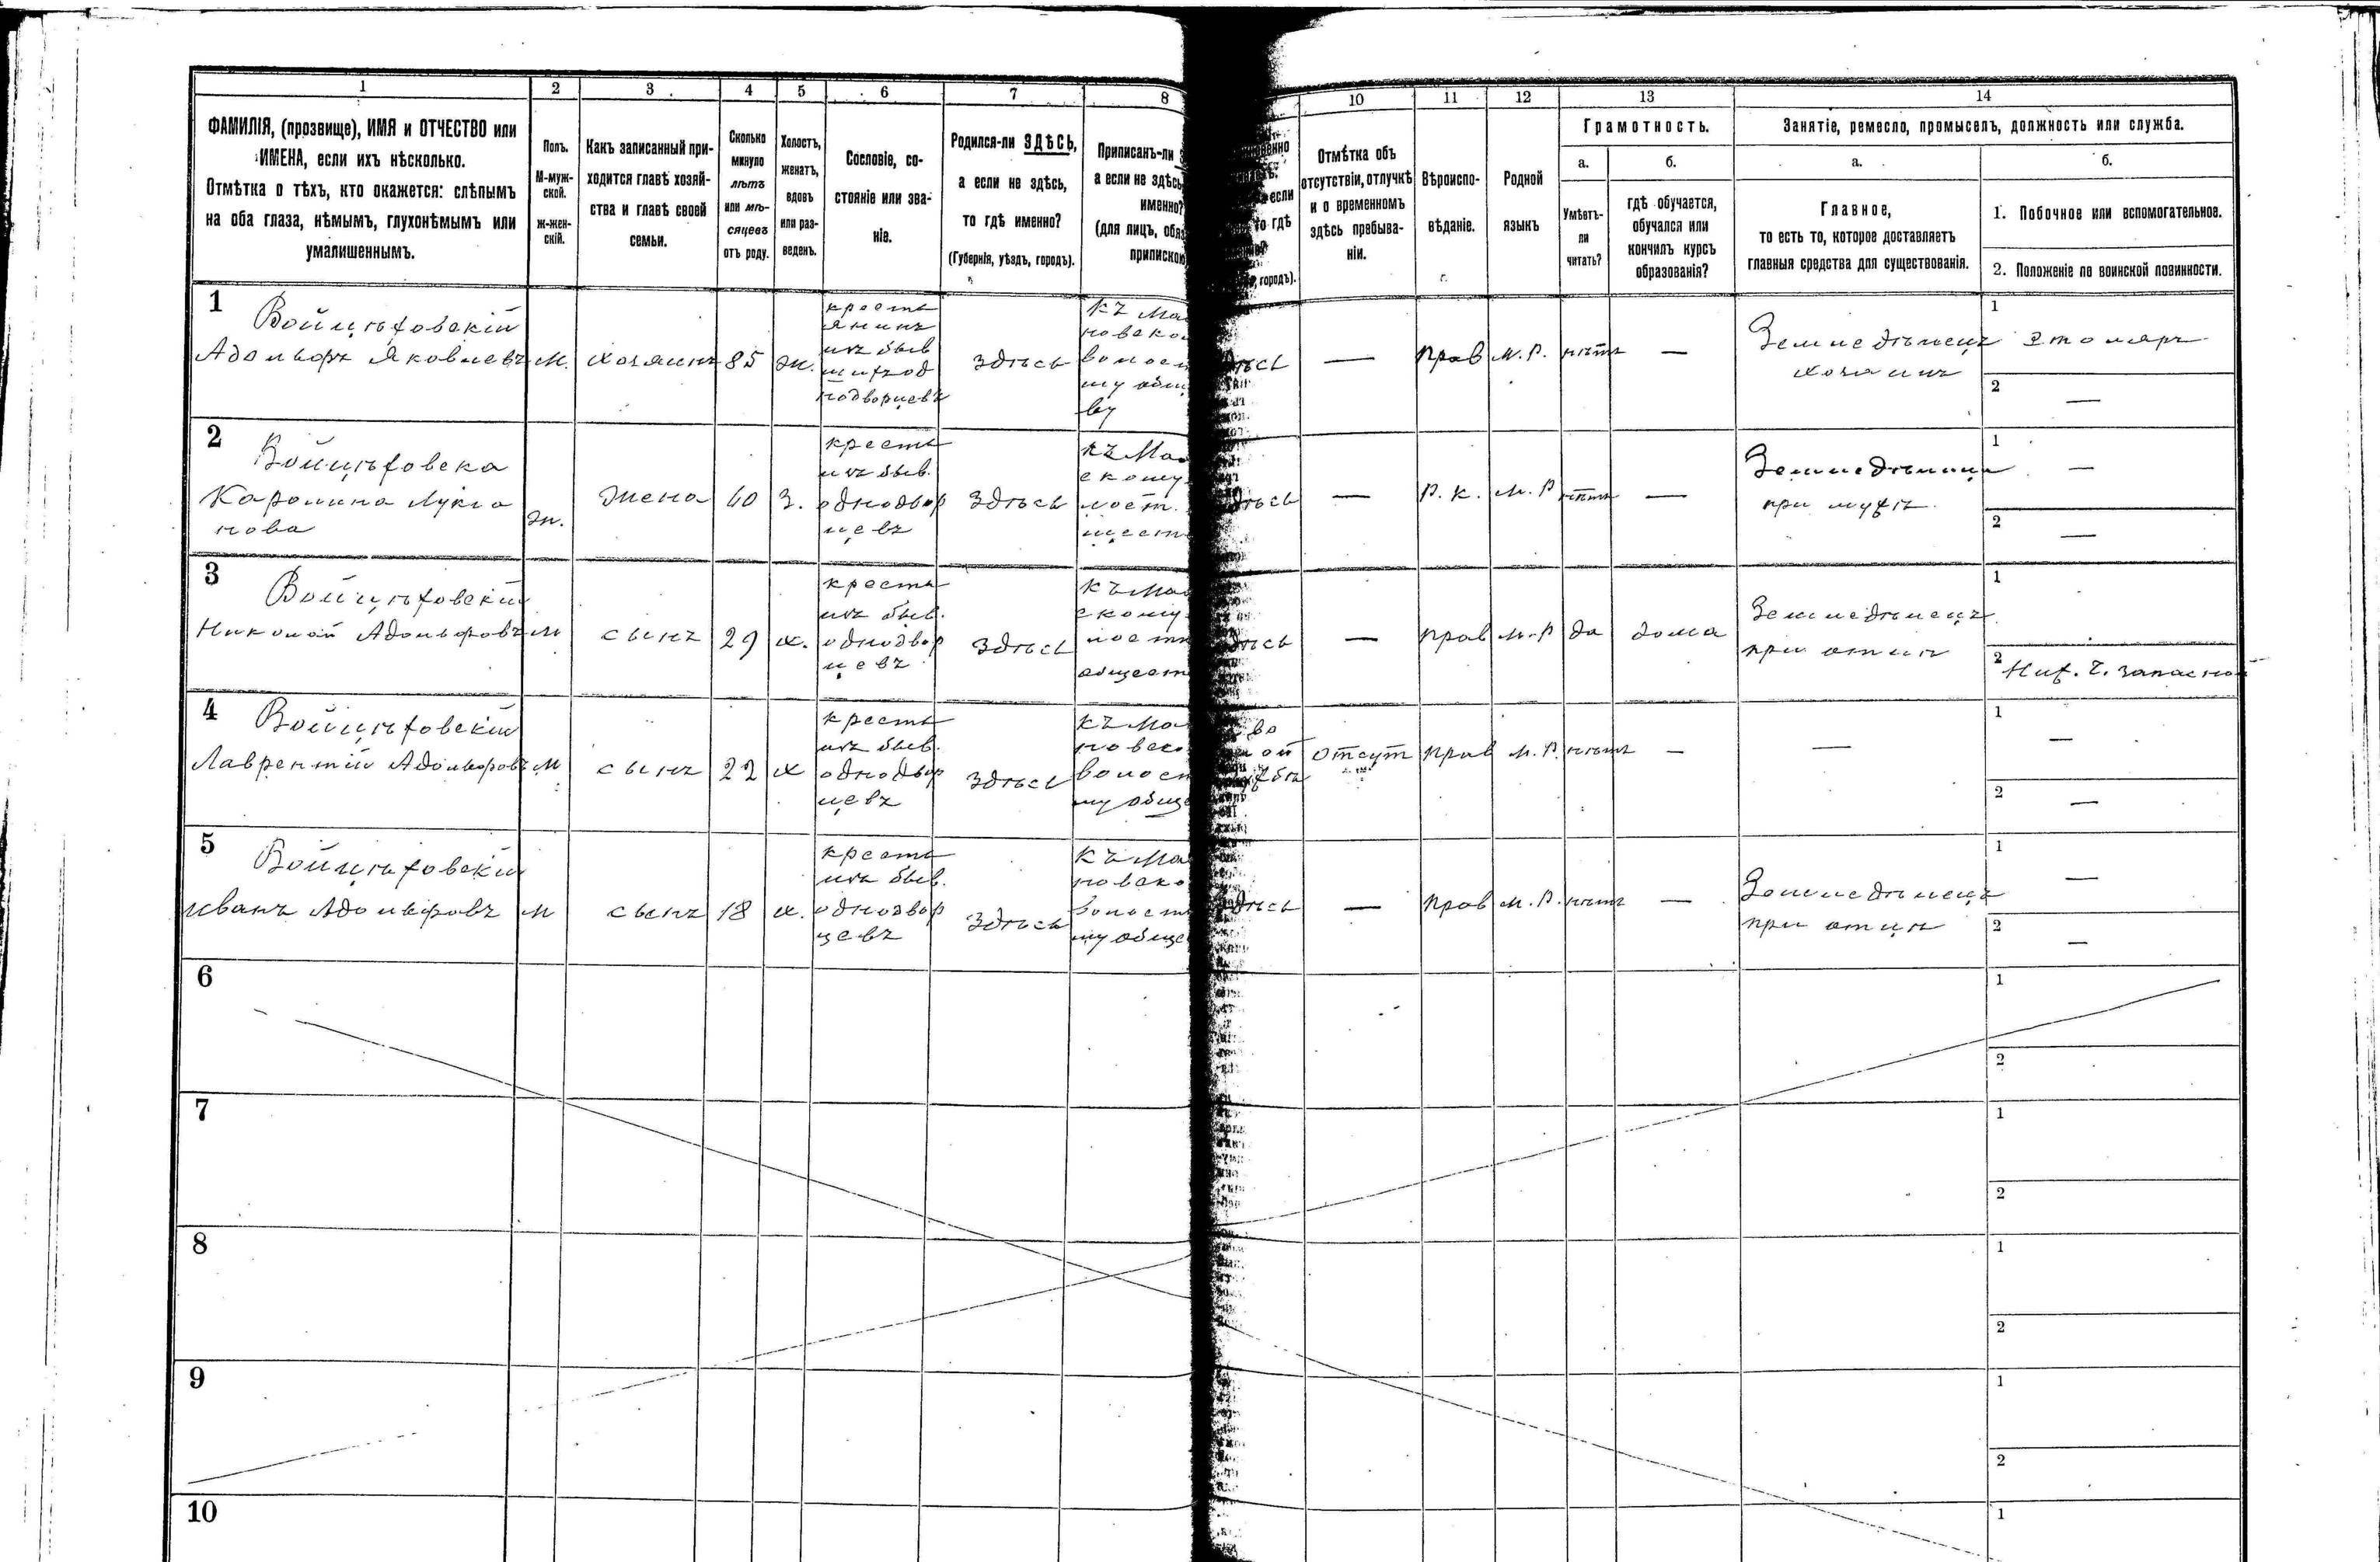 1 2 3 4 5 6 7 8 10 11 12 13 14
ФАМИЛІЯ, (прозвище), ИМЯ и ОТЧЕСТВО или
ИМЕНА, если ихъ нѣсколько.
Отмѣтка о тѣхъ, кто окажется: слѣпымъ
на оба глаза, нѣмымъ, глухонѣмымъ или
умалишеннымъ.
Полъ.
М-муж-
ской.
ж-жен-
скій.
Какъ записанный при-
ходится главѣ хозяй-
ства и главѣ своей
семьи.
Сколько
минуло
лѣтъ
или мѣ-
сяцевъ
отъ роду.
Холостъ,
женатъ,
вдовъ
или раз-
веденъ.
Сословіе, со-
стояніе или зва-
ніе.
Родился-ли ЗДѢСЬ,
а если не здѣсь,
то гдѣ именно?
(Губернія, уѣздъ, городъ).
Приписанъ-ли
а если не здѣсь
именно?
(для лицъ, обяз
припискою
если
то гдѣ
городъ).
Отмѣтка объ
отсутствіи, отлучкѣ
и о временномъ
здѣсь пребыва-
ніи.
Вѣроиспо-
вѣданіе.
Родной
языкъ
Грамотность.
а.
Умѣетъ-
ли
читать?
б.
гдѣ обучается,
обучался или
кончилъ курсъ
образованія?
Занятіе, ремесло, промыселъ, должность или служба.
а.
Главное,
то есть то, которое доставляетъ
главныя средства для существованія.
б.
1. Побочное или вспомогательное.
2. Положеніе по воинской повинности.
1
Войцѣховскій
Адольфъ Яковлевъ
м.
хозяинъ
85
ж.
кресть
янинъ
изъ быв
подворцевъ
здѣсь
къ Ма
новско
волост
му общ
ву
—
прав
м. р.
нѣтъ
—
Земледѣлецъ
хозяинъ
1
столяръ
2 —
2
Войцѣховска
Каролина Лукіа
нова
ж.
жена
60
з.
кресть
изъ быв.
однодвор
цевъ
здѣсь
къ Ма
скому
лост.
щест
—
Р. К.
м. р
нѣтъ
—
Земледѣлица
при мужѣ
1 —
2 —
3
Войцѣховскій
Николай Адольфовъ
м
сынъ
29
х.
кресть
изъ быв.
однодвор
цевъ
здѣсь
къ Ма
скому
лост
общест
—
прав
м. р
да
дома
Земледѣлецъ
при отцѣ
1
2 Ниж. ч. запасной
4
Войцѣховскій
Лаврентій Адольфовъ
м
сынъ
22
х
кресть
изъ быв.
однодвор
цевъ
здѣсь
къ Ма
новско
волост
му обще
во
отсут
прав
м. р.
нѣтъ
—
—
1 —
2 —
5
Войцѣховскій
Иванъ Адольфовъ
м
сынъ
18
х.
кресть
изъ быв.
однодвор
цевъ
здѣсь
къ Ма
новско
волост
му обще
—
прав
м. р.
нѣтъ
—
Земледѣлецъ
при отцѣ
1 —
2 —
6
1
2
7
1
2
8
1
2
9
1
2
10
1